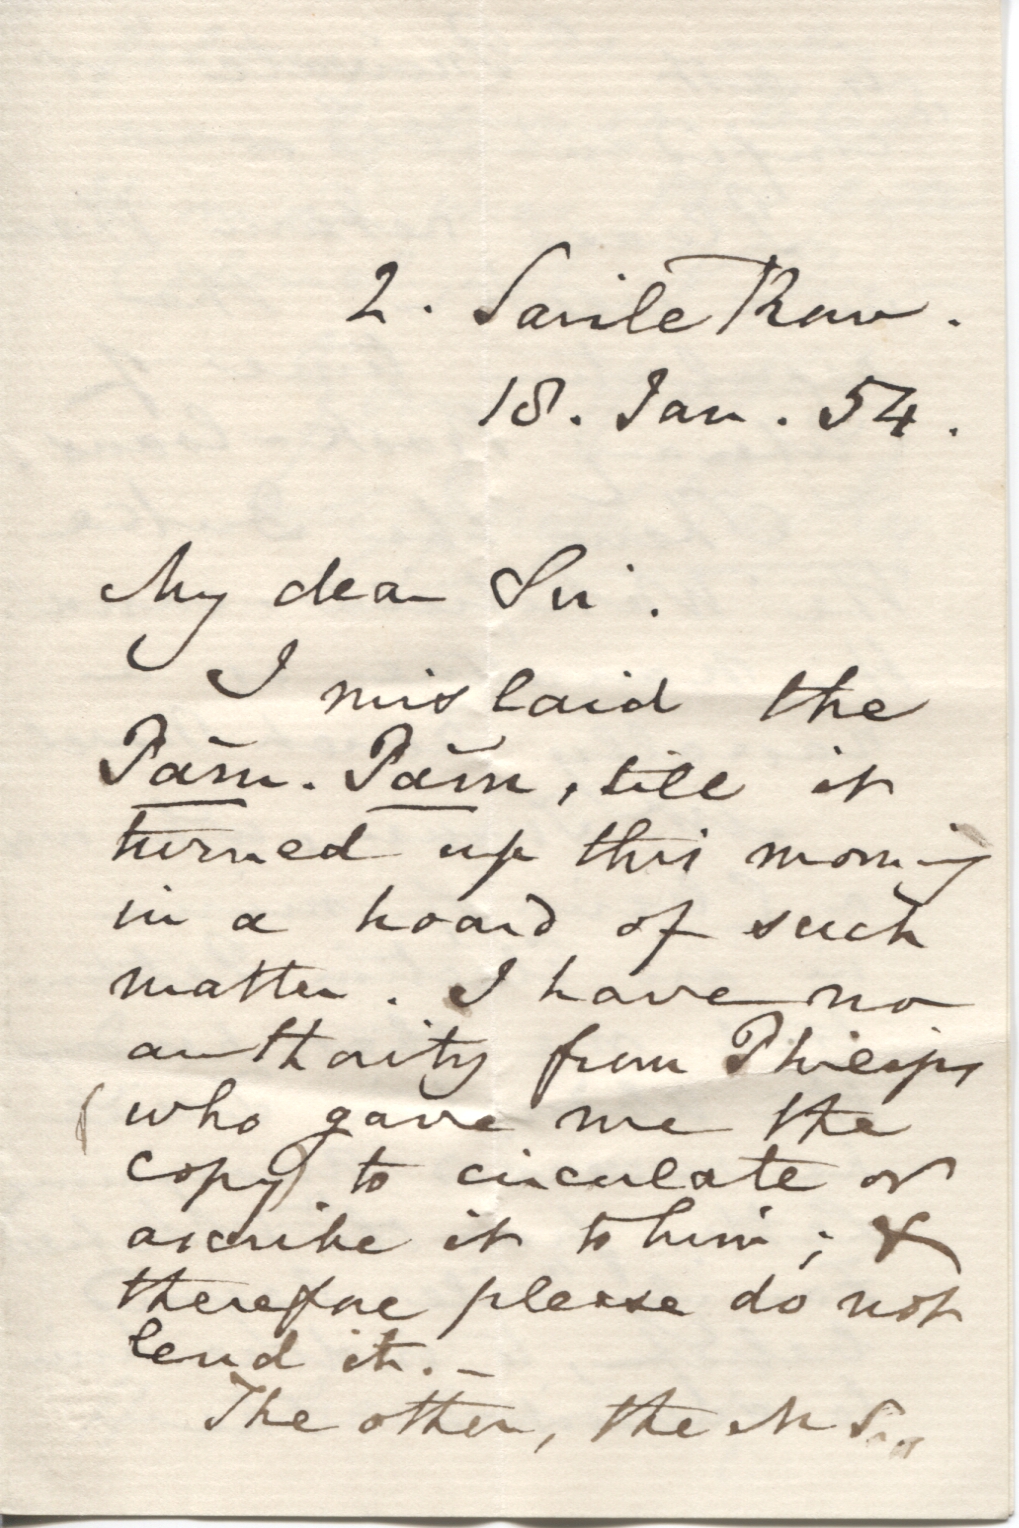 2. Savile Row.
18. Jan. 54.
My dear Sir.
I mislaid the
Pām. Pām, till it
turned up this morning
in a hoard of such
matter. I have no
authority from Phillips
(who gave me the
copy) to circulate or
ascribe it to him; &
therefore please do not
lend it. _
The other, the MS.,